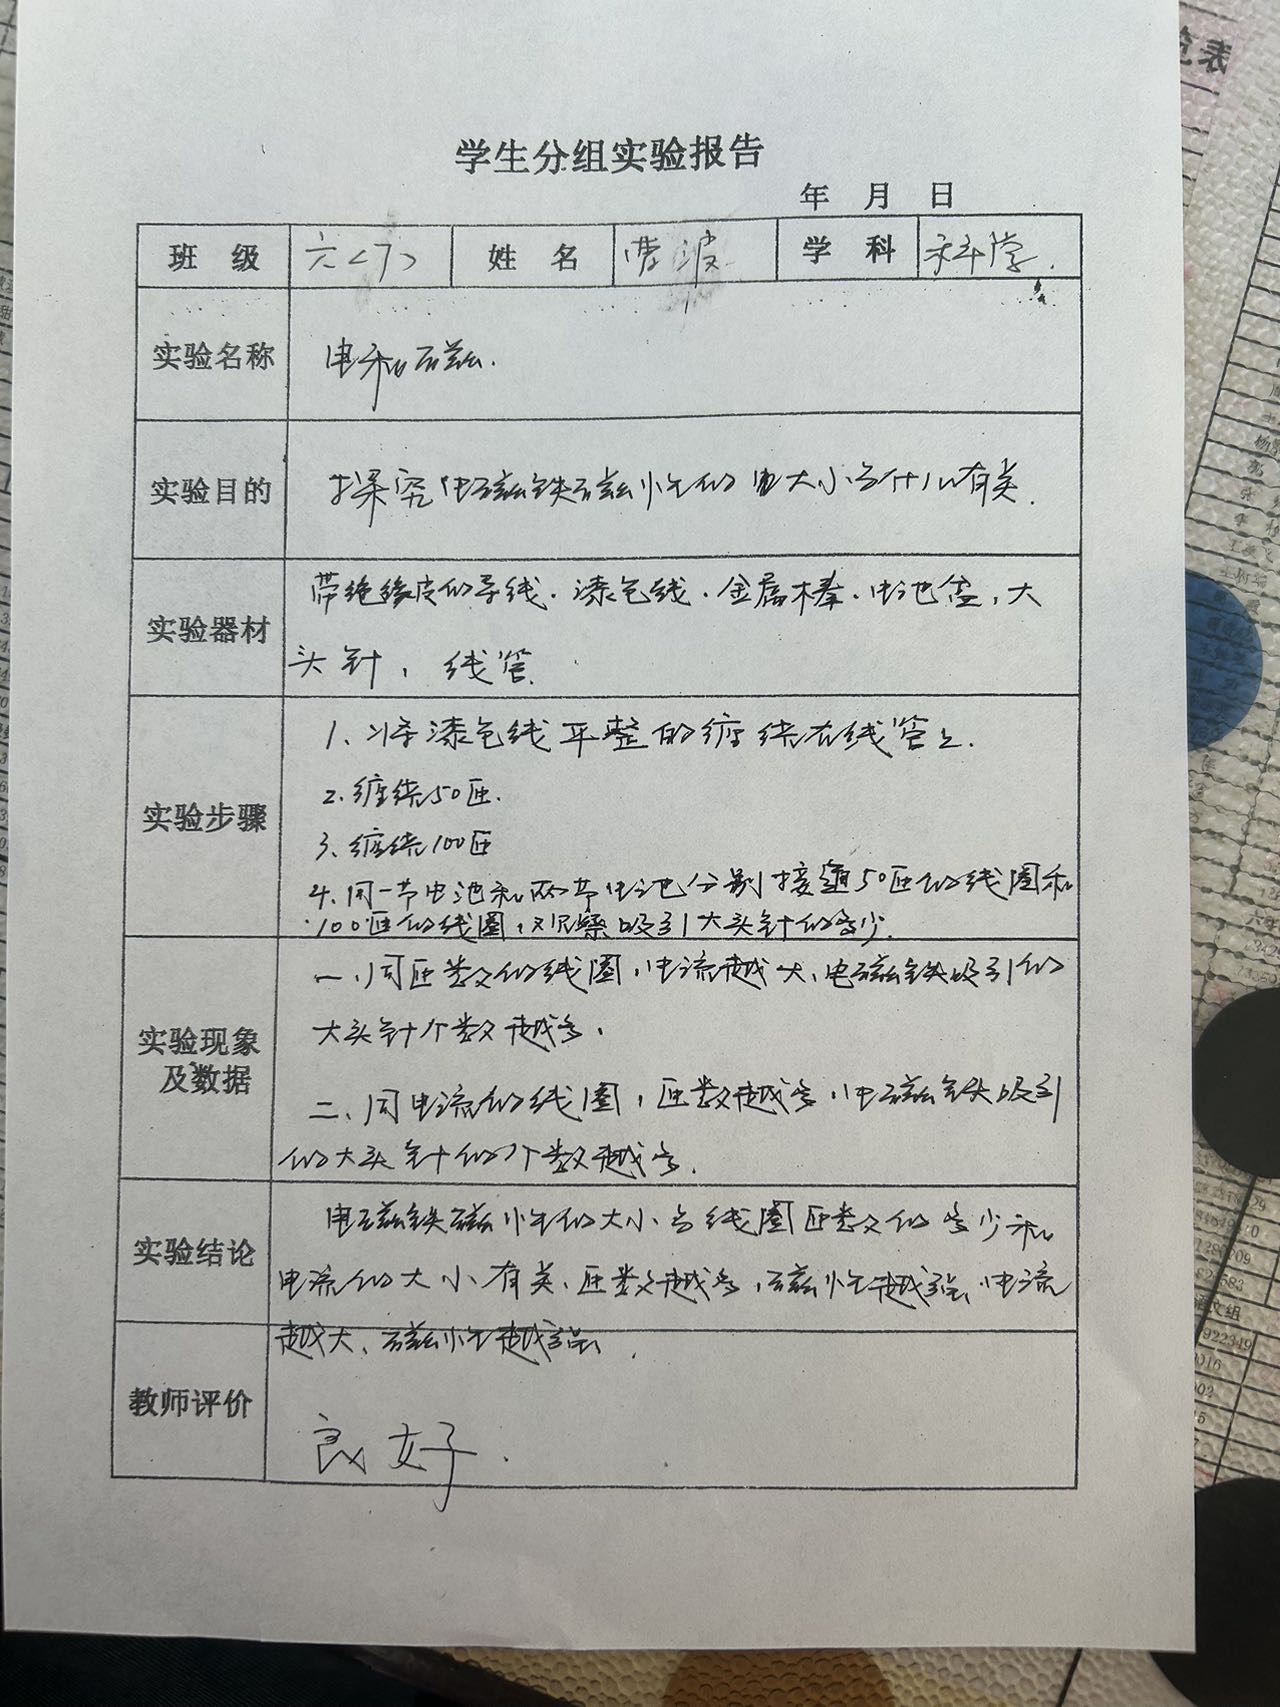 学生分组实验报告
年 月 日
班 级 六<7> 姓 名 曹波 学 科 科学.
实验名称 电和磁.
实验目的 探究电磁铁磁性的大小与什么有关.
实验器材 带绝缘皮的导线.漆包线.金属棒.电池盒,大
头针,线管.
实验步骤 1、将漆包线平整的缠绕在线管上.
2.缠绕50匝.
3、缠绕100匝
4.用一节电池和两节电池分别接通50匝的线圈和
100匝的线圈,观察吸引大头针的多少.
实验现象及数据 一、同匝数的线圈,电流越大,电磁铁吸引的
大头针个数越多.
二、同电流的线圈,匝数越多,电磁铁吸引
的大头针的个数越多.
实验结论 电磁铁磁性的大小与线圈匝数的多少和
电流的大小有关、匝数越多,磁性越强,电流
越大、磁性越强.
教师评价 良好.